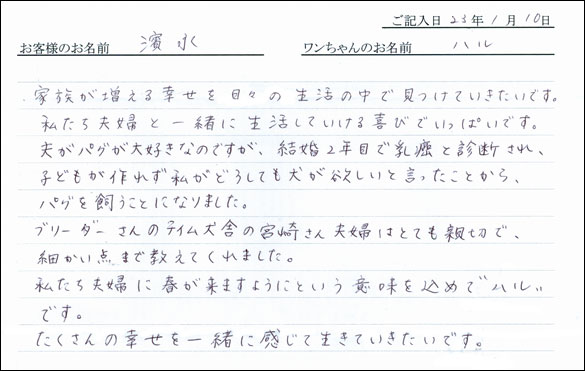 ご記入日 23年 1月 10日
お客様のお名前 濱 水 ワンちゃんのお名前 ハル
家族が増える幸せを日々の生活の中で見つけていきたいです。
私たち夫婦と一緒に生活していける喜びでいっぱいです。
夫がパグが大好きなのですが、結婚2年目で乳癌と診断され、
子どもが作れず私がどうしても犬が欲しいと言ったことから、
パグを飼うことになりました。
ブリーダーさんのテイム犬舎の宮崎さん夫婦はとても親切で、
細かい点まで教えてくれました。
私たち夫婦に春が来ますようにという意味を込めて"ハル"
です。
たくさんの幸せを一緒に感じて生きていきたいです。